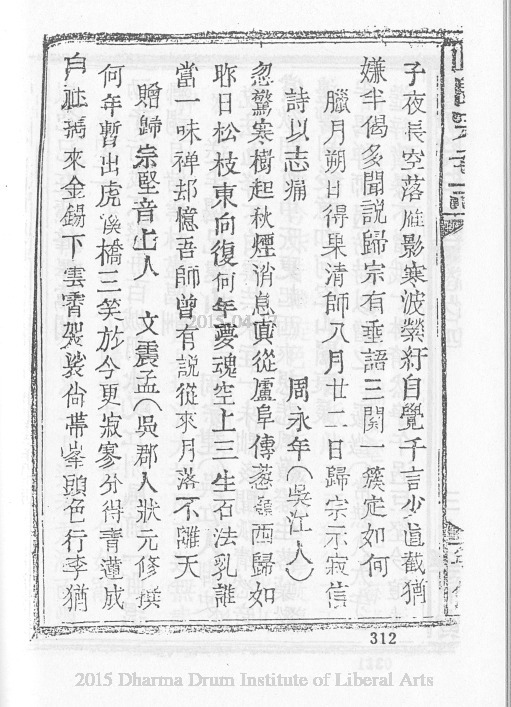 子夜長空落雁影寒波縈紆自覺千言少直截猶
嫌半偈多聞說歸宗有垂語三關一簇定如何
臘月朔日得果清師八月廿二日歸宗示寂信
詩以志痛 周永年(吳江人)
忽驚寒樹起秋煙消息真從廬阜傳葱嶺西歸如
昨日松枝東向復何年夢魂空上三生石法乳誰
當一味禪却憶吾師曾有說從來月落不離天
贈歸宗堅音上人 文震孟(吳郡人狀元修撰
何年暫出虎溪橋三笑於今更寂寥分得青蓮成
白社攜來金錫下雲霄袈裟尚帶峯頭色行李猶
312
2015.04.07
2015 Dharma Drum Institute of Liberal Arts